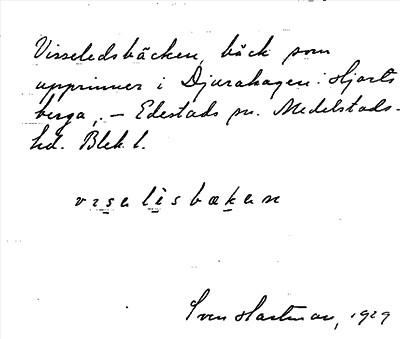 Visseledsbäcken, bäck som
upprinner i Djurahagen. Hjorts
berga, – Edestads sn. Medelstads-
hd. Blek. l.
viselisbækæn
Sven Hartman, 1929